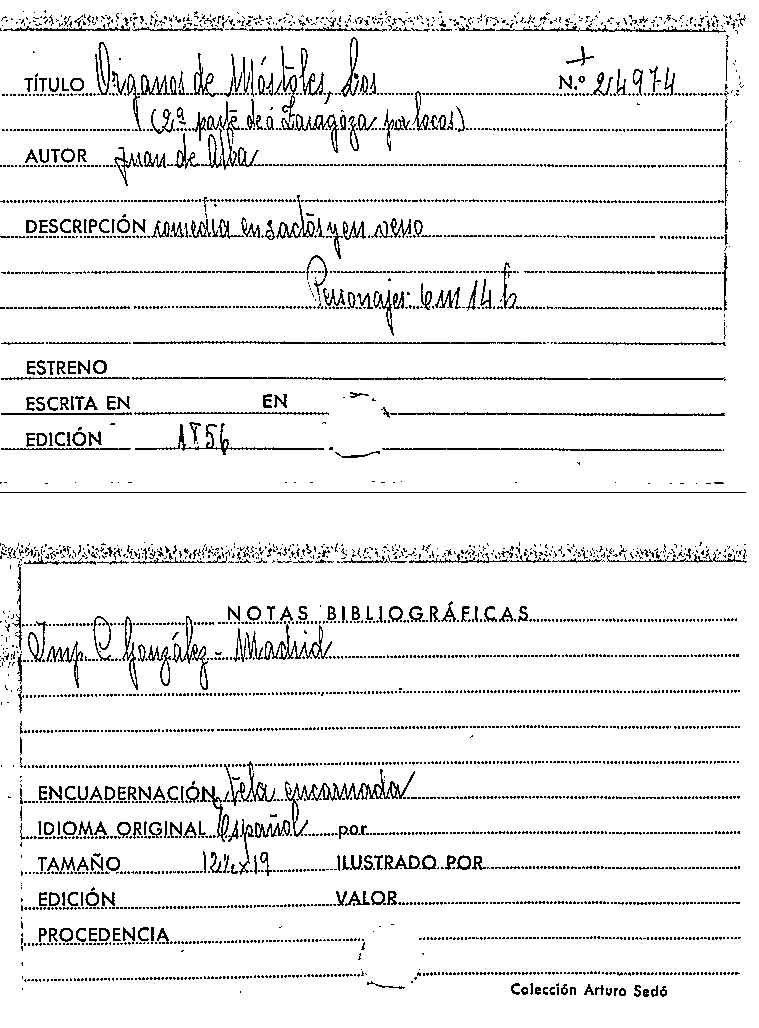 +
TÍTULO Organos de Móstoles, Los N.º 24974
(2ª parte de ó Zaragoza por locos)
AUTOR Juan de Alba
DESCRIPCIÓN comedia en 3 actos y en verso
Personajes: 6 m 14 h
ESTRENO
ESCRITA EN EN
EDICIÓN 1856
NOTAS BIBLIOGRÁFICAS
Imp. C. González - Madrid
ENCUADERNACIÓN Tela encarnada
IDIOMA ORIGINAL Español por
TAMAÑO 12½ x 19 ILUSTRADO POR
EDICIÓN VALOR
PROCEDENCIA
Colección Arturo Sedó